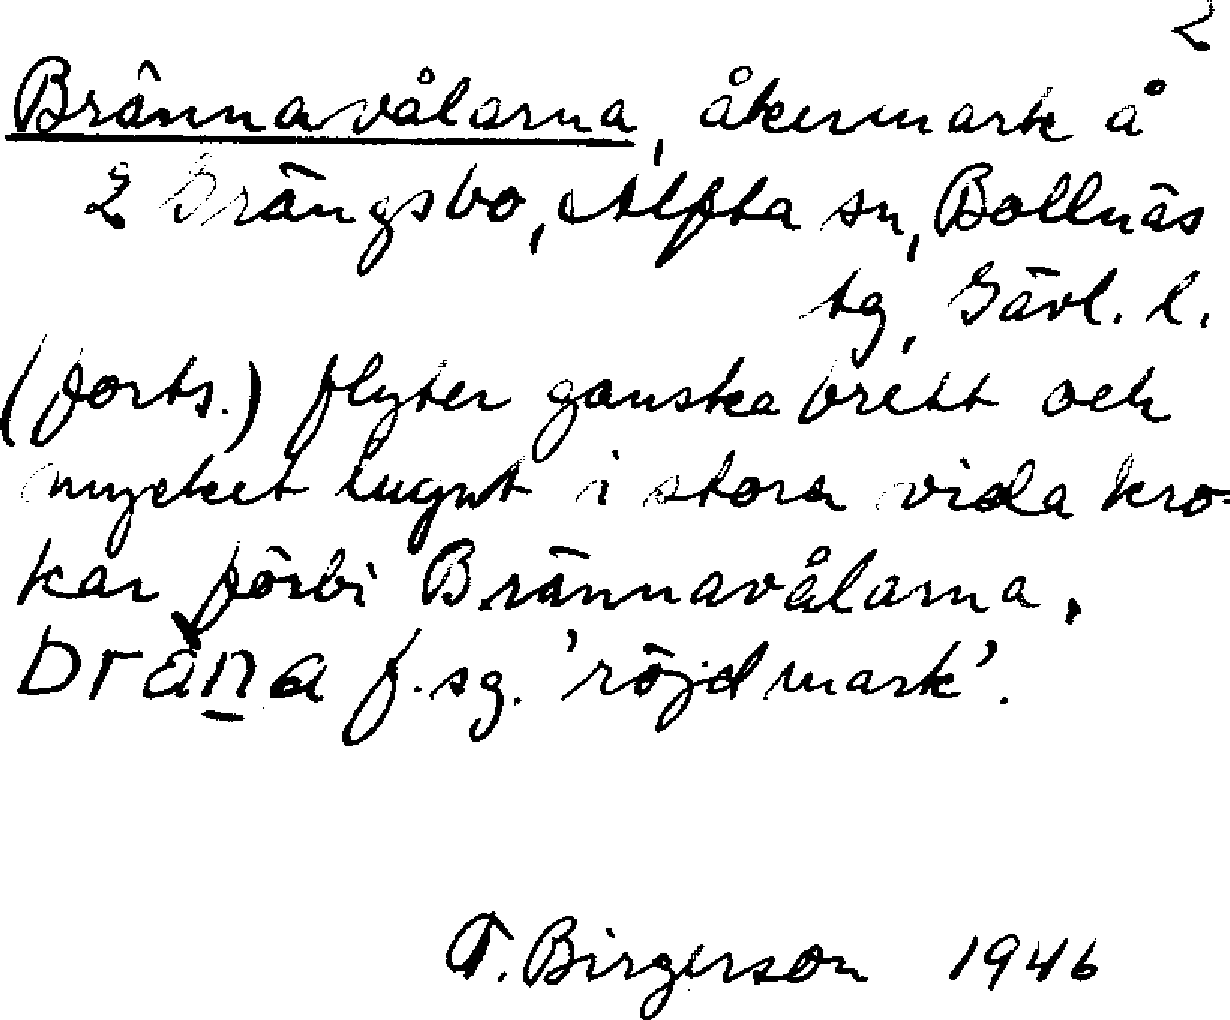 2
Brännavålarna, åkermark å
2 Grängsbo, Alfta sn, Bollnäs
tg, Gävl. l.
(forts.) flyter ganska brett och
mycket lugnt i stora vida kro-
kar förbi Brännavålarna.
f. sg. 'röjd mark'.
T. Birgerson 1946